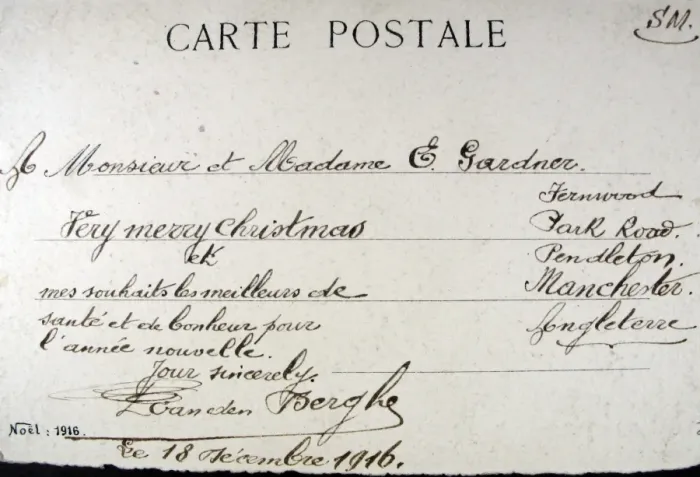 S.M.
CARTE POSTALE
A Monsieur et Madame E. Gardner.
Fernwood
Very merry Christmas
Park Road.
et
Pendleton.
mes souhaits les meilleurs de
Manchester.
santé et de bonheur pour
Angleterre
l'année nouvelle.
Your sincerely.
Van den Berghe
Noël : 1916.
Le 18 Décembre 1916.